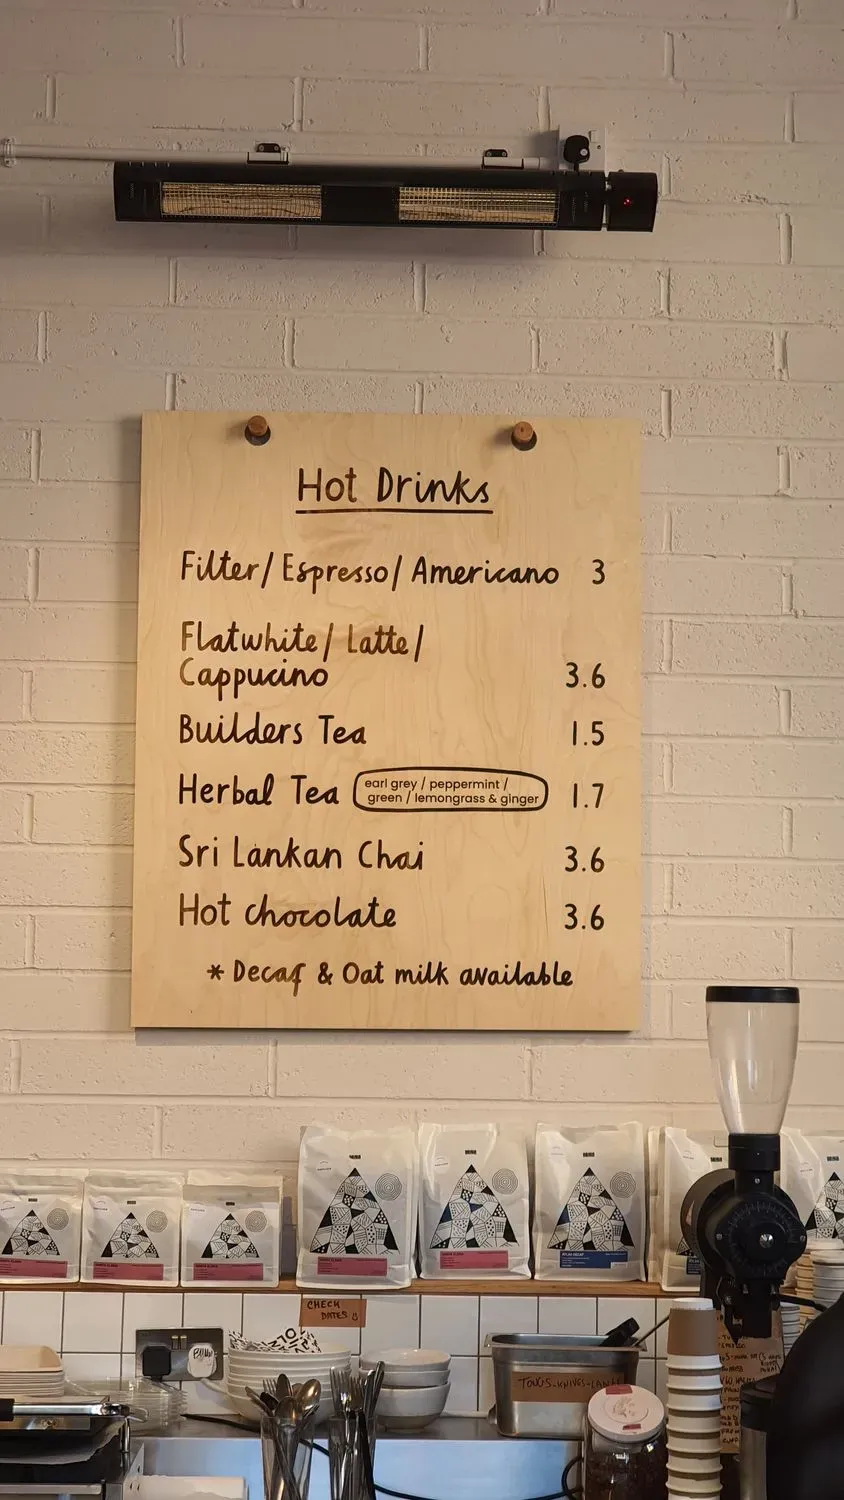 Hot Drinks
Filter/ Espresso/ Americano 3
Flatwhite/ Latte/
Cappucino 3.6
Builders Tea 1.5
Herbal Tea earl grey / peppermint / 1.7
green / lemongrass & ginger
Sri Lankan Chai 3.6
Hot chocolate 3.6
* Decaf & Oat milk available
CHECK
DATES
TONGS-KNIVES-